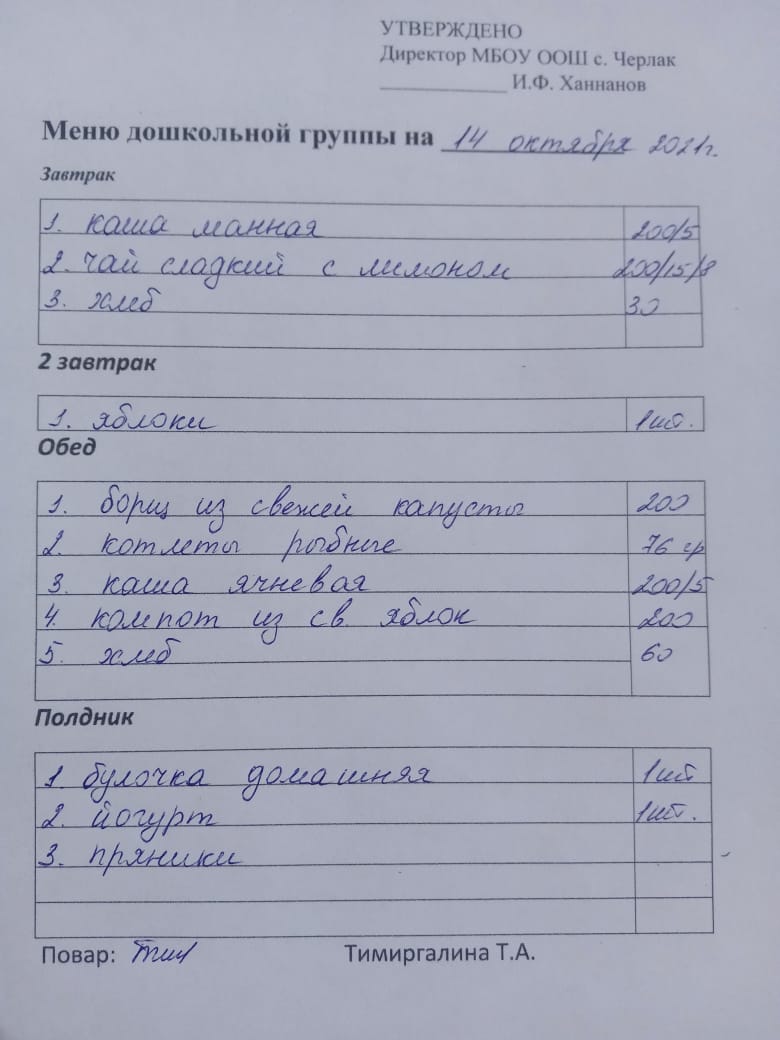 УТВЕРЖДЕНО
Директор МБОУ ООШ с. Черлак
____________ И.Ф. Ханнанов
Меню дошкольной группы на 14 октября 2021г.
Завтрак
1. каша манная 200/5
2. чай сладкий с лимоном 200/15/8
3. хлеб 30
2 завтрак
1. яблоки 1шт.
Обед
1. борщ из свежей капусты 200
2. котлеты рыбные 76 гр
3. каша ячневая 200/5
4. компот из св. яблок 200
5. хлеб 60
Полдник
1. булочка домашняя 1шт
2. йогурт 1шт.
3. пряники
Повар: Тимиргалина Т.А.